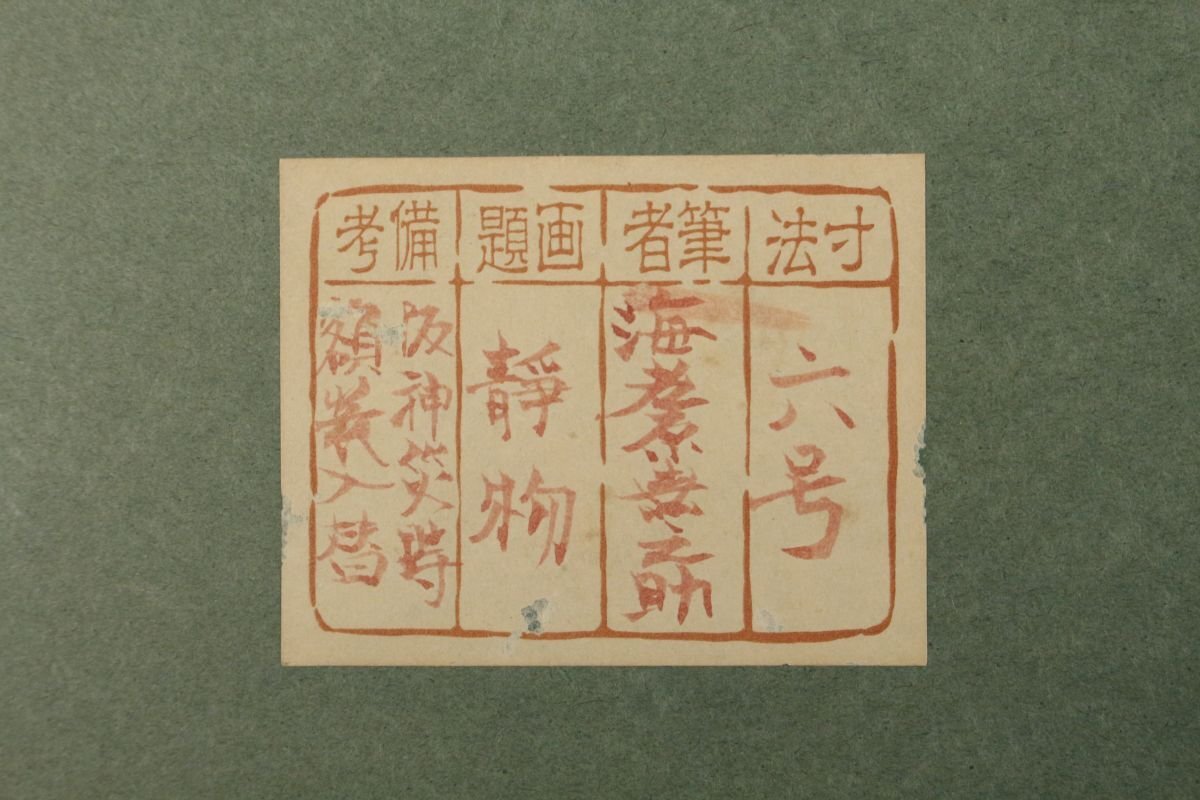 寸法
六号
筆者
海老原喜之助
画題
靜物
備考
阪神災時
額装入替